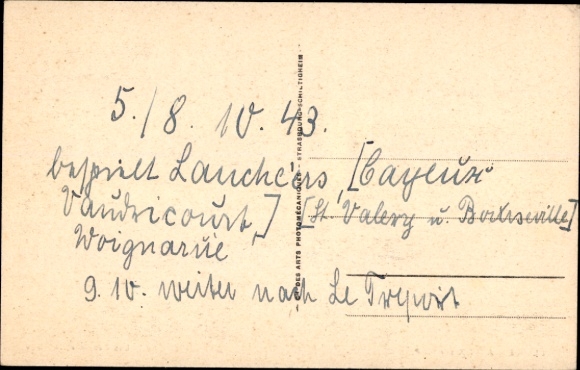 5./8. 10. 43.
bespielt Lanchères, [Cayeux
Vaudricourt,] [St. Valery u. Bourseville]
Woignarue
9. 10. weiter nach Le Treport
DES ARTS PHOTOMÉCANIQUES - STRASBOURG-SCHILTIGHEIM